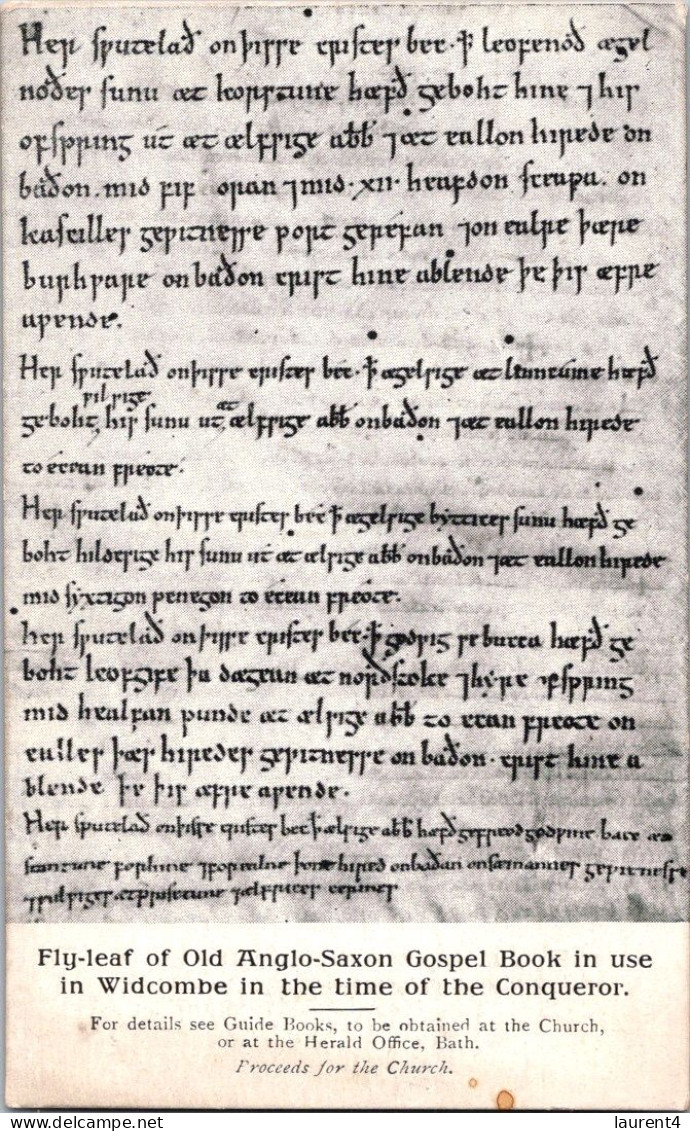 Her swutelað on þisse cristes bec ꝥ leofenoð ægel
noðes sunu æt heorstune hæfð geboht hine ⁊ his
ofspring ut æt ælfsige abb ⁊ æt eallon hirede on
baðon. mid fif oran ⁊ mid · xii · heafdon sceapa. on
leofcildes gewitnesse port gerefan ⁊ on ealre þære
burhware on baðon crist hine ablende þe þis æfre
awende.
Her swutelað on þisse cristes bec · ꝥ ægelsige æt linncume hæfð
wilsige
geboht, his sunu ut æt ælfsige abb on baðon ⁊ æt eallon hirede
to ecean freote ·
Her swutelað on þisse cristes bec ꝥ ægelsige byttices sunu hæfð ge
boht hildesige his sunu ut æt ælfsige abb on baðon ⁊ æt eallon hirede
mid syxtigon penegon to ecean freote ·
her swutelað on þisse cristes bec · ꝥ godwig se bucca hæfð ge
boht leofgife þa dagean æt norðstoke ⁊ hyre ofspring
mid healfan punde æt ælfsige abb to ecan freote on
ealles þæs hiredes gewitnesse on baðon · crist hine a
blende þe þis æfre awende ·
Her swutelað on þisse cristes bec ꝥ ælfsige abb hæfð gefreod godwine bace æt
stantune for hine ⁊ for ealne þone hired on baðan on sæmannes gewitnesse
⁊ wulfiges æt prisctune ⁊ ælfrices cermes
Fly-leaf of Old Anglo-Saxon Gospel Book in use
in Widcombe in the time of the Conqueror.
For details see Guide Books, to be obtained at the Church,
or at the Herald Office, Bath.
Proceeds for the Church.
laurent4